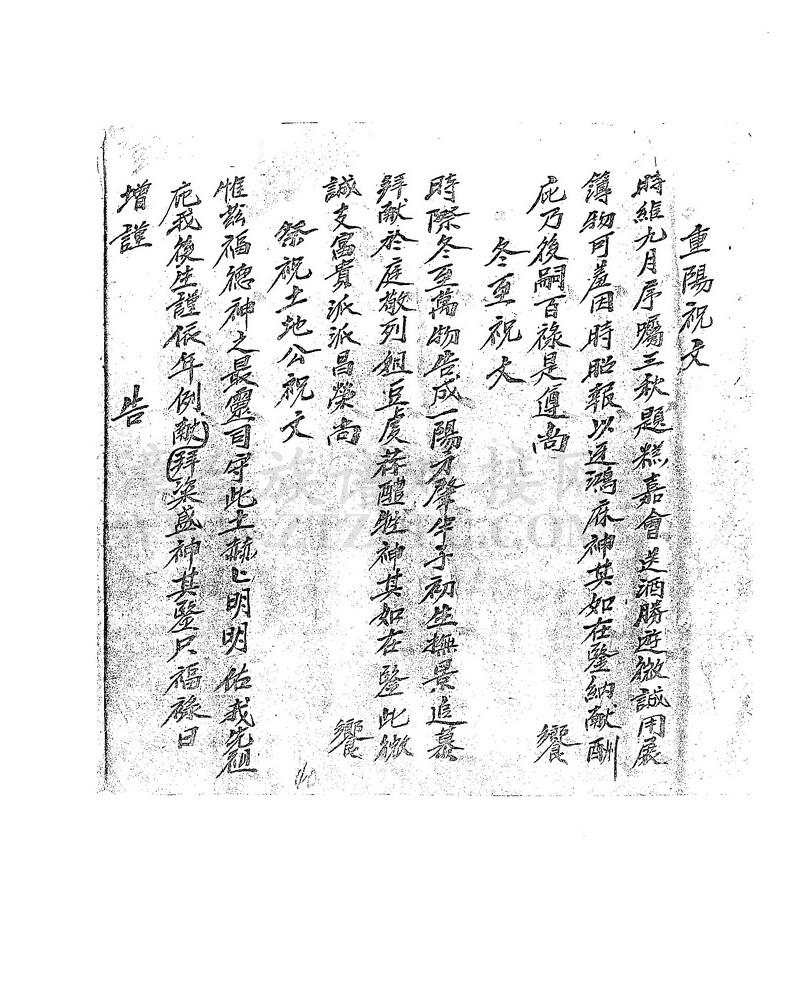 重陽祝文
時維九月序屬三秋題糕嘉會送酒勝遊微誠用展
簿物可羞因時昭報以迓鴻庥神其如在鑒納献酬
庇乃後嗣百祿是遵尚 饗
冬至祝文
時際冬至萬物告成一陽方肇半子初生撫景追慕
拜献於庭敬列俎豆虔荐醴牲神其如在鑒此微
誠支富貴派派昌榮尚 饗
祭祝土地公祝文
惟兹福德神之最靈司守此土赫々明明佑我先祖
庇我後生謹依年例献拜粢盛神其鑒尺福祿日
增謹 告